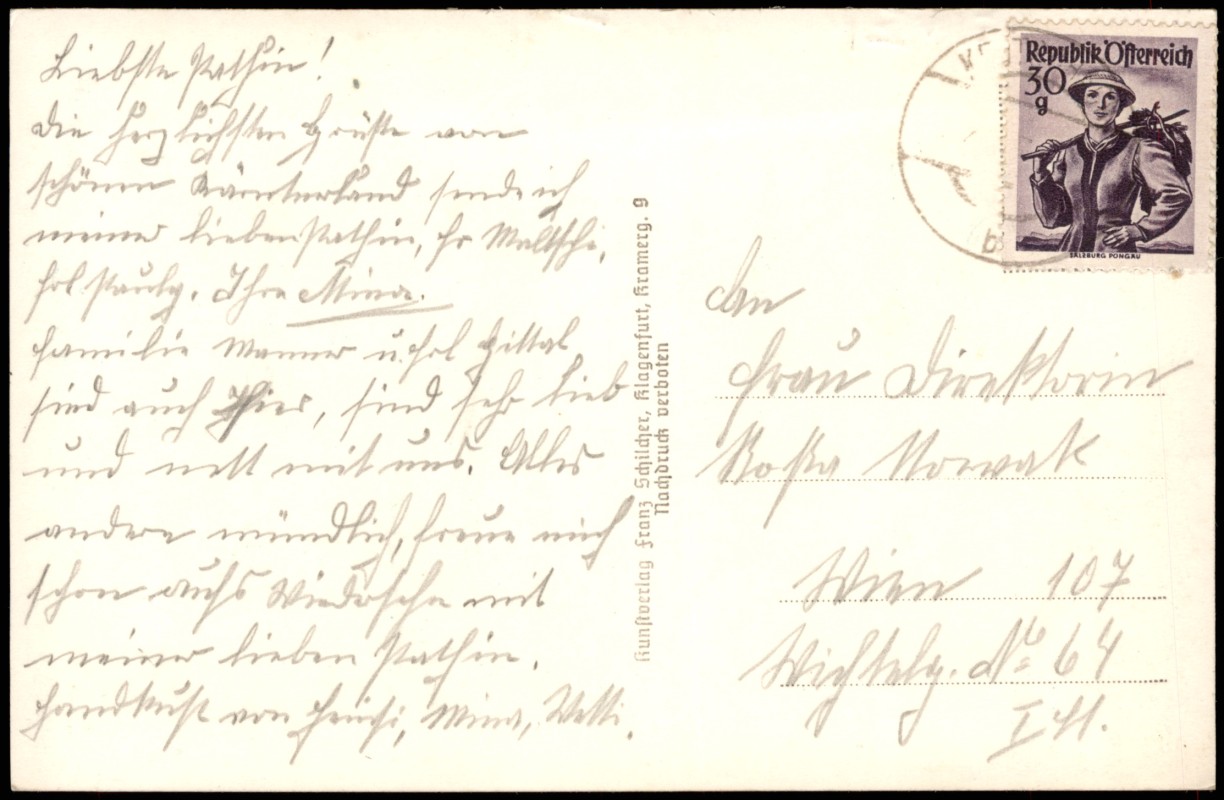 Liebste Pathin!
Die herzlichsten Grüße vom
schönen Kärntnerland sende ich
meiner lieben Pathin, Fr
Frl Pauly. Ihre Mina.
Familie Wanner u. Frl
sind auch hier, sind sehr lieb
und nett mit uns. Alles
andere mündlich, freue mich
schon aufs Wiedersehn mit
meiner lieben Pathin.
Handkuß von Mina, Vetti.
Kunstverlag Franz Schilcher, Klagenfurt, Kramerg. 9
Nachdruck verboten
Republik Österreich
30
g
SALZBURG PONGAU
An
Frau Direktorin
Rosa Nowak
Wien 107
Wichtelg. No 64
I. St.